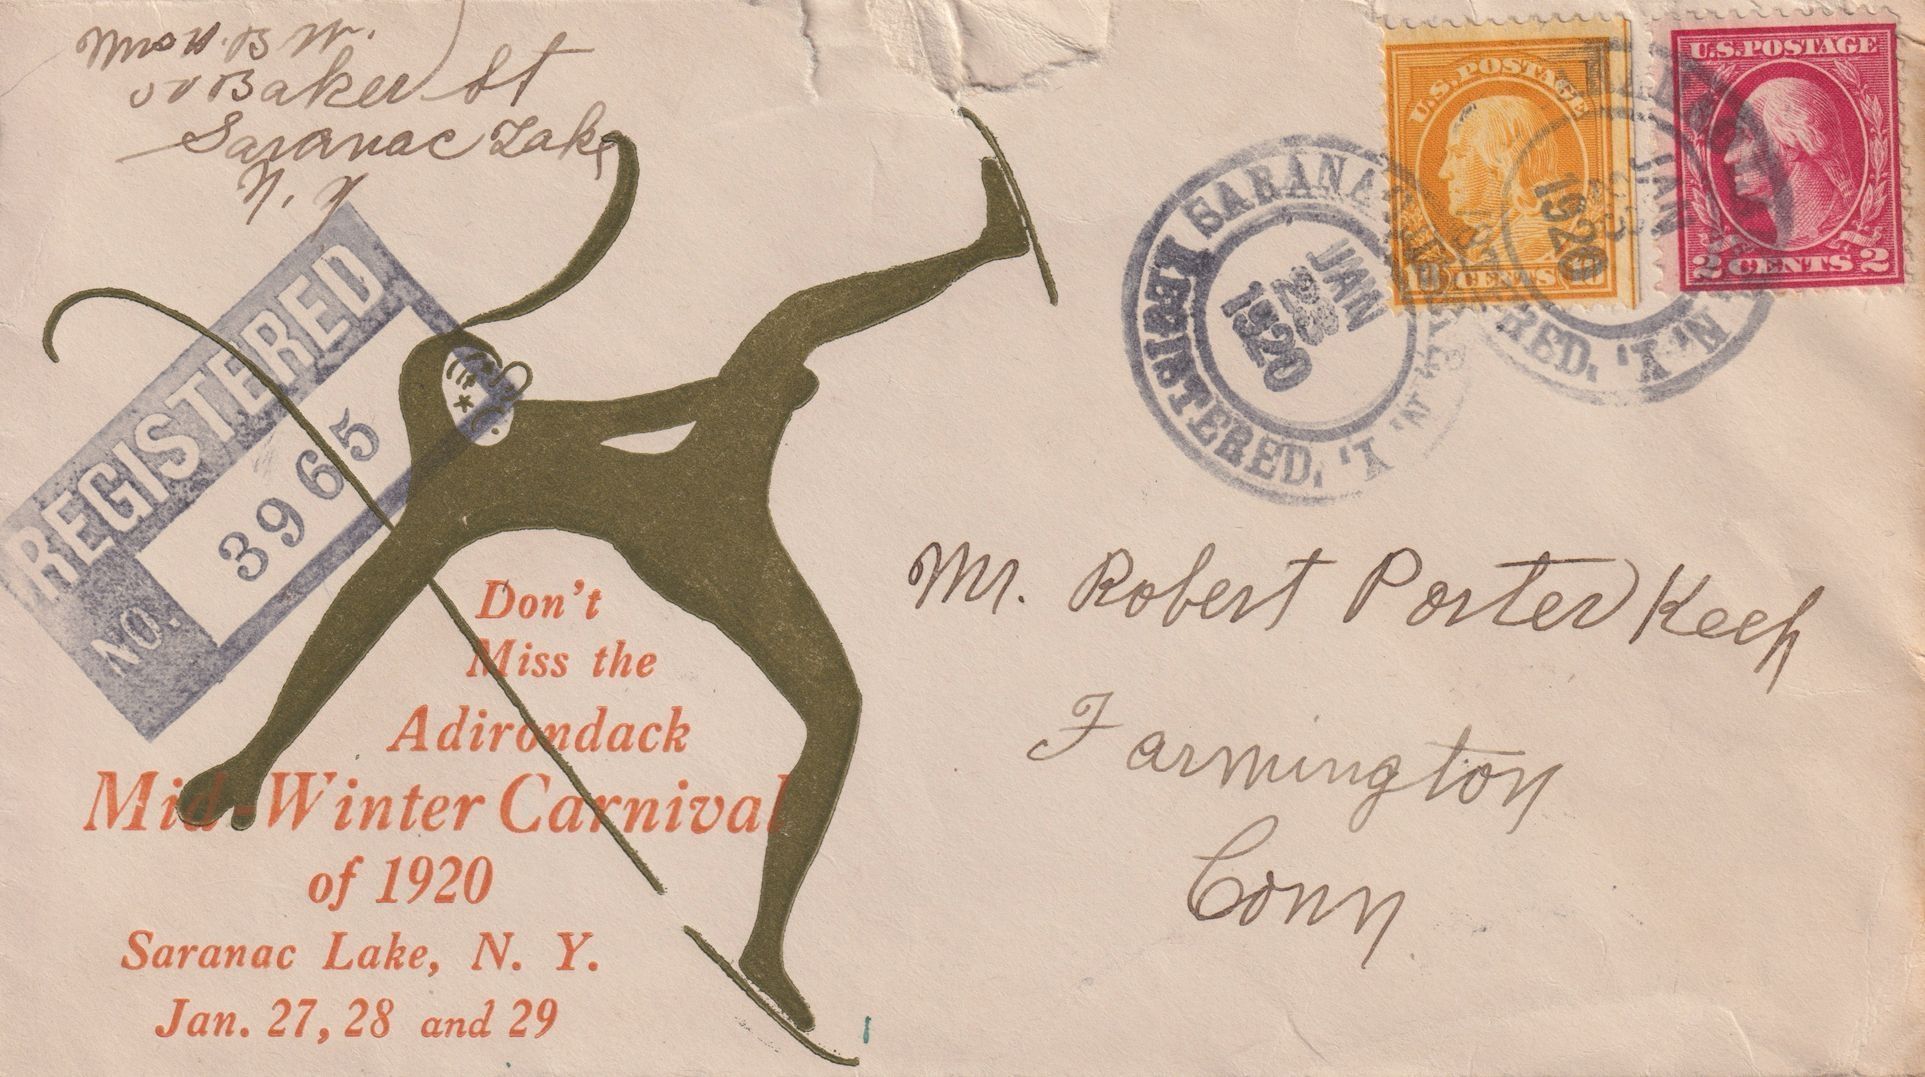 Mrs H. B W.
Baker St
Saranac Lake
N. Y
REGISTERED
NO. 3965
U.S. POSTAGE
10 CENTS 10
U.S. POSTAGE
2 CENTS 2
SARANAC LAKE, N. Y.
REGISTERED.
JAN
23
1920
N. Y.
REGISTERED.
JAN
23
1920
Mr. Robert Porter Keep
Farmington
Conn
Don't
Miss the
Adirondack
Mid-Winter Carnival
of 1920
Saranac Lake, N. Y.
Jan. 27, 28 and 29